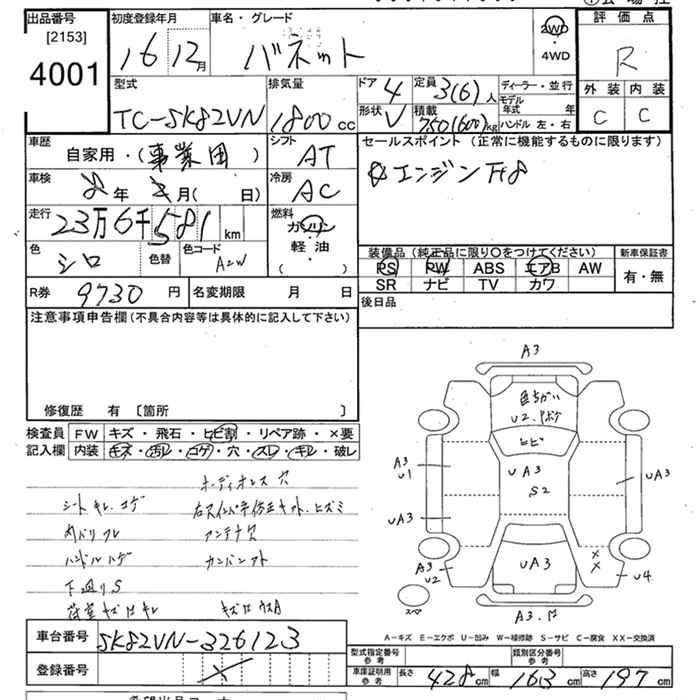 出品番号
[2153]
4001
初度登録年月
16 12月
車名・グレード
バネット
2WD
・
4WD
評価点
R
外装 内装
C C
型式
TC-SK82VN
排気量
1800 cc
ドア 4
形状 V
定員 3(6)人
積載 750(600)kg
ディーラー・並行
モデル年式 年
ハンドル 左・右
車歴
自家用・(事業用)
シフト
AT
セールスポイント(正常に機能するものに限ります)
車検
年 月(日)
冷房
AC
走行
23万6千581 km
燃料
ガソリン
軽・油
( )
色
シロ
色替
色コード
装備品(純正品に限り〇をつけてください)
PS PW ABS エアB AW
SR ナビ TV カワ
新車保証書
有・無
R券 9730円
名変期限 月 日
後日品
注意事項申告欄(不具合内容等は具体的に記入して下さい)
修復歴 有 〔箇所 〕
検査員
記入欄
FW キズ・飛石・ヒビ割・リペア跡・×要
内装 キズ・汚レ・コゲ・穴・スレ・キレ・破レ
シートキレ.コゲ
アンテナ穴
下廻りS
A3
色ちがい
ヒビ
UA3
S2
A3
U1
UA3
UA3
UA3
A3
U2
×
×
U4
スペ
A-キズ E-エクボ U-凹み W-補修跡 S-サビ C-腐食 XX-交換済
車台番号 SK82VN-326123
登録番号
型式指定番号
参考
類別区分番号
参考
車庫証明用
参考
長さ 428cm 幅 163cm 高さ 197cm